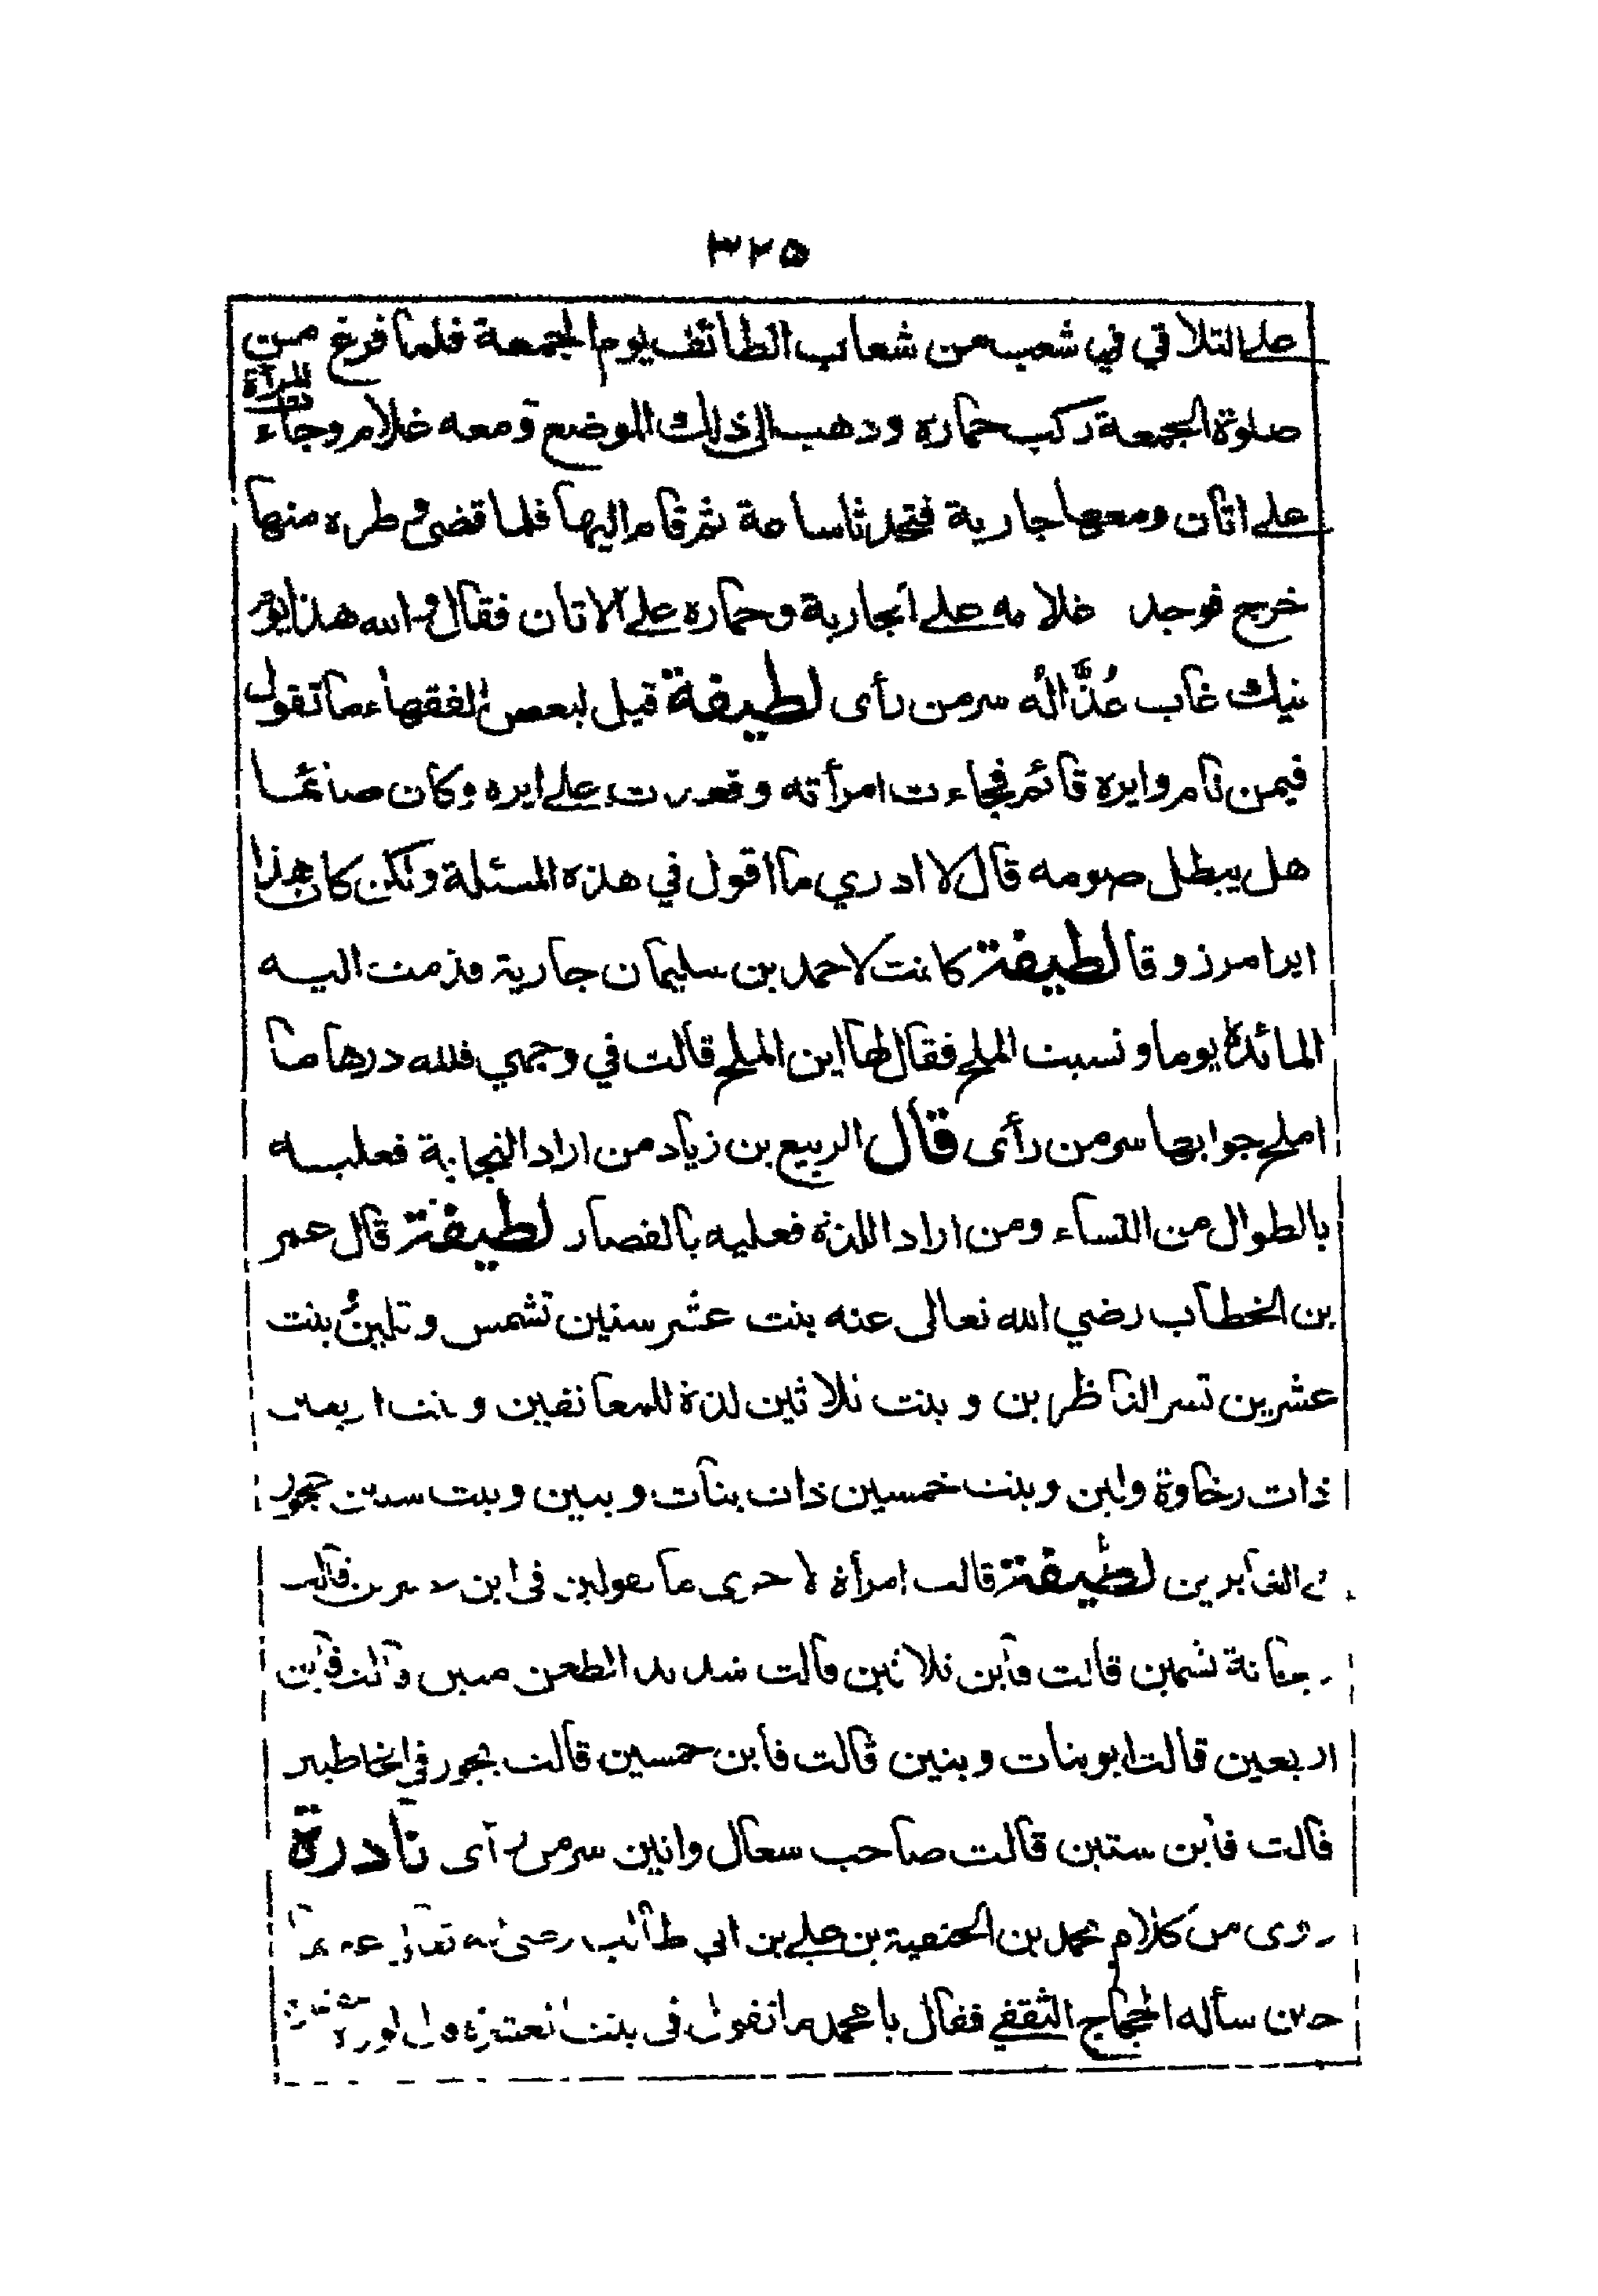 ٣٢٥
على التلاقي في شعب من شعاب الطائف يوم الجمعة فلما فرغ من
صلوة الجمعة ركب حماره وذهب الى ذلك الموضع ومعه غلام وجاءت المرأة
على اتان ومعها جارية فتحدثا ساعة ثم قام اليها فلما قضى وطره منها
خرج فوجد غلامه على الجارية وحماره على الاتان فقال والله هذا يوم
نيك غاب عُذّاله سر من رأى لطيفة قيل لبعض الفقهاء ما تقول
فيمن نام وايره قائم فجاءت امرأته وقعدت على ايره وكان صائما
هل يبطل صومه قال لا ادري ما اقول في هذه المسئلة ولكن كان هذا
ايرا مرزوقا لطيفة كانت لاحمد بن سليمان جارية قدمت اليه
المائدة يوما ونسيت الملح فقال لها اين الملح قالت في وجهي فلله درها ما
املح جوابها سر من رأى قال الربيع بن زياد من اراد النجابة فعليه
بالطوال من النساء ومن اراد اللذة فعليه بالقصار لطيفة قال عمر
بن الخطاب رضي الله تعالى عنه بنت عشر سنين تشمس وتلين بنت
عشرين تسر الناظرين وبنت ثلاثين لذة للمعانقين وبنت اربعين
ذات رخاوة ولين وبنت خمسين ذات بنات وبنين وبنت ستين عجوز
في الغابرين لطيفة قالت امرأة لاخرى ما تقولين في ابن عشرين قالت
ريحانة تشمين قالت فابن ثلاثين قالت شديد الطعن متين قالت فابن
اربعين قالت ابو بنات وبنين قالت فابن خمسين قالت يجوز في الخاطبين
قالت فابن ستين قالت صاحب سعال وانين سر من رآى نادرة
روى من كلام محمد بن الحنفية بن علي بن ابي طالب رضي الله تعالى عنهما
حين سأله الحجاج الثقفي فقال يا محمد ما تقول في بنت العشرة قال